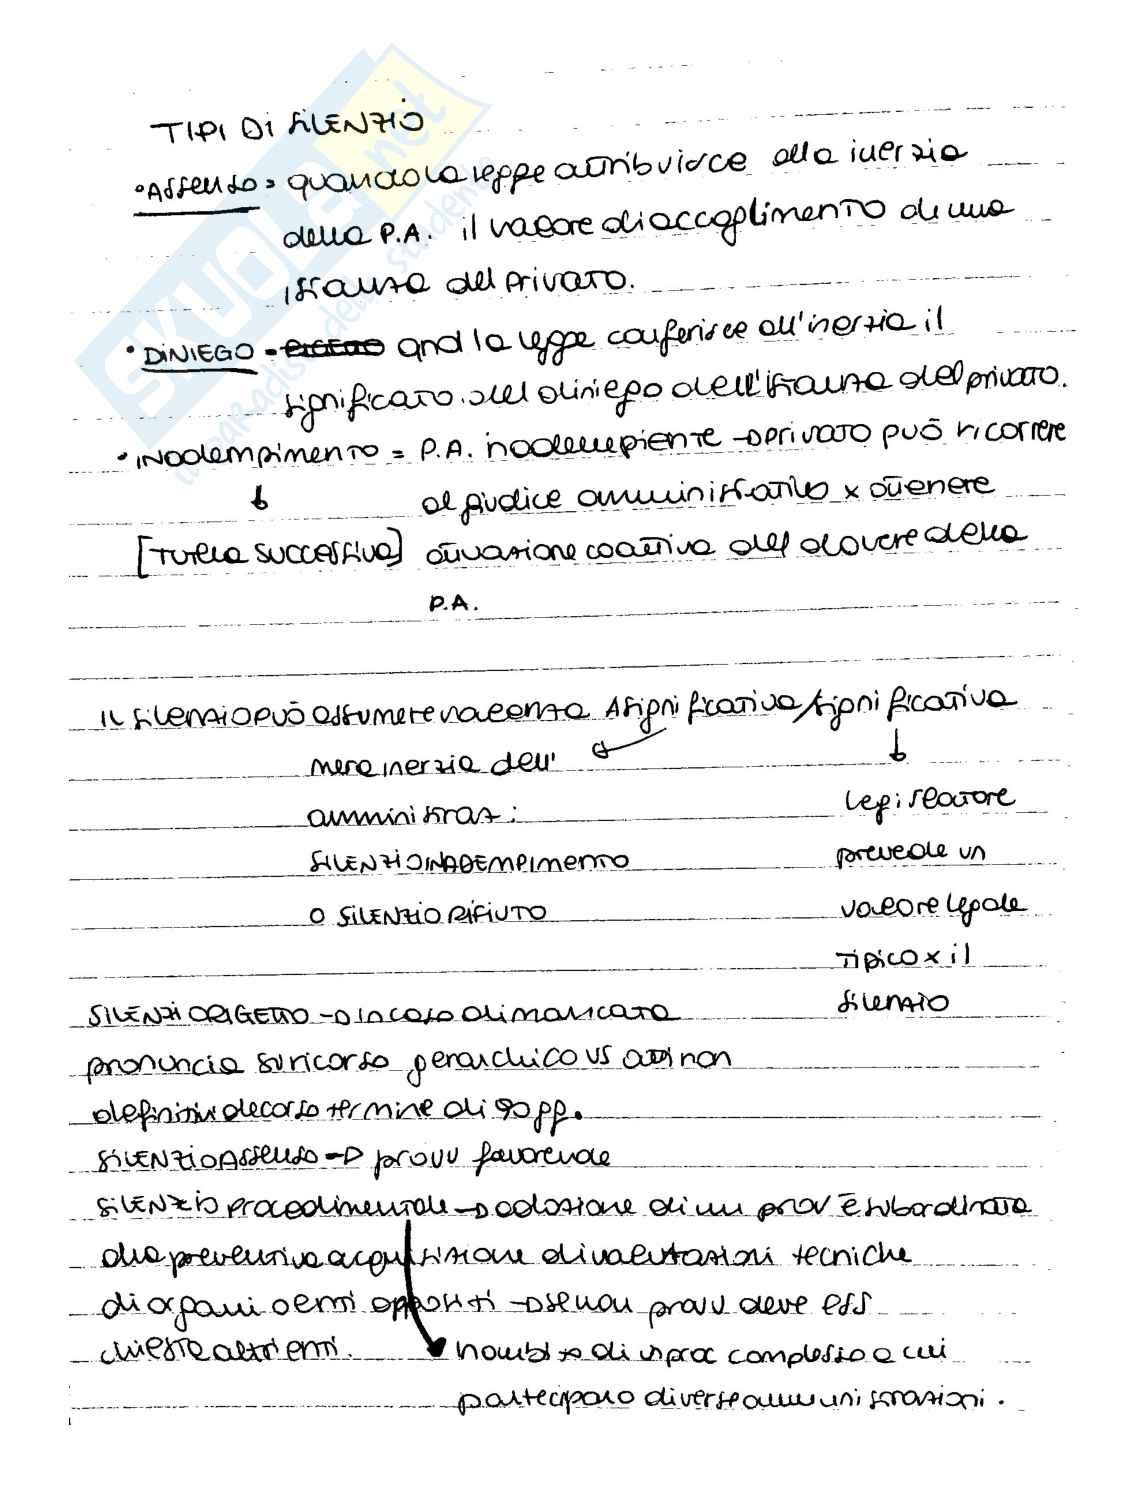 TIPI DI SILENZIO
•ASSENSO = quando la legge attribuisce alla inerzia
della P.A. il valore di accoglimento di una
istanza del privato.
• DINIEGO - qnd la legge conferisce all'inerzia il
significato del diniego dell'istanza del privato.
• INADEMPIMENTO = P.A. inadempiente → privato può ricorrere
al giudice amministrativo x ottenere
[TUTELA SUCCESSIVA] attivazione coattiva del dovere della
P.A.
IL SILENZIO PUÒ assumere valenza Asignificativa/significativa
mera inerzia dell'
amministraz:
legislatore
SILENZIO INADEMPIMENTO
prevede un
O SILENZIO RIFIUTO
valore legale
tipico x il
SILENZIO
SILENZIO RIGETTO → in caso di mancata
pronuncia su ricorso gerarchico vs atti non
definitivi decorso termine di 90 gg.
SILENZIO ASSENSO → provv favorevole
SILENZIO procedimentale → adozione di un prov è subordinata
alla preventiva acquisizione di valutazioni tecniche
di organi o enti appositi → senon provv deve ess
chiesto altri enti.
nell'ambito di 1 proc complesso a cui
partecipano diverse amministrazioni.
SKUOLA.net
il paradiso dello studente